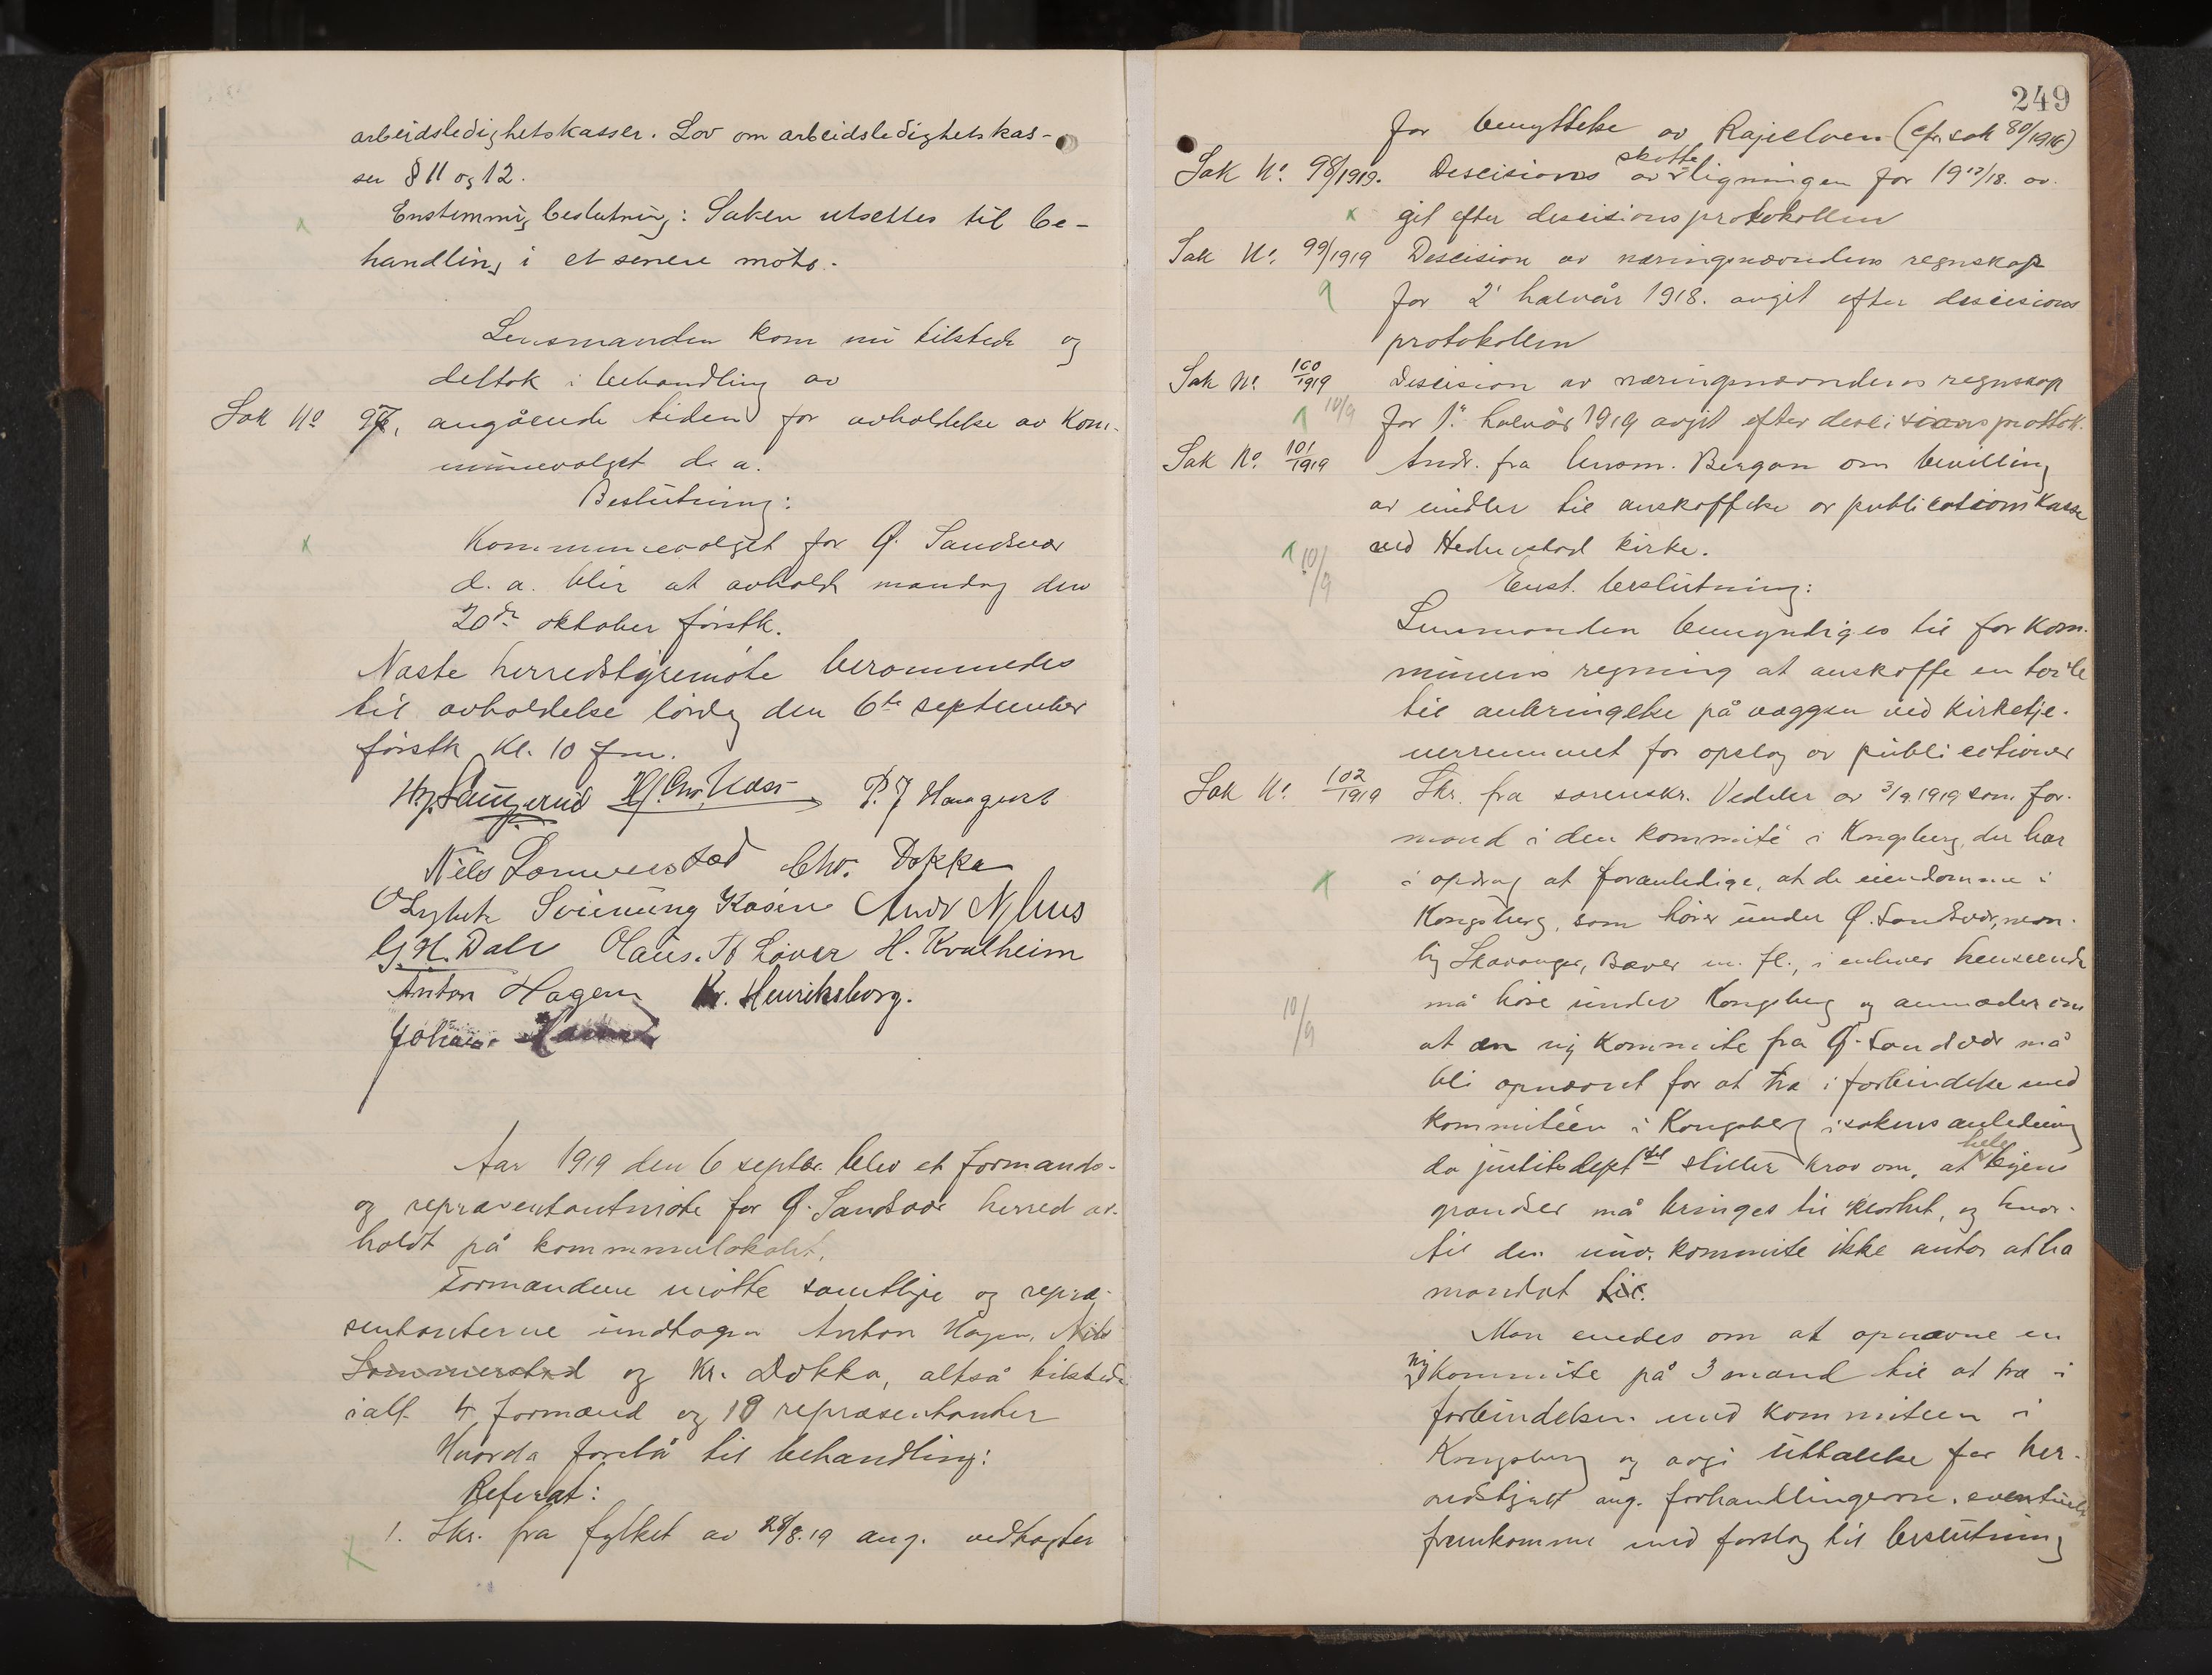 arbeidsledighetskasser. Lov om arbeidsledighetskas-
ser § 11 og 12.
Enstemmig beslutning: Saken utsettes til be-
handling i et senere møte.
Lensmanden kom nu tilstede og
deltok i behandling av
Sak No 97, angående tiden for avholdelse av Kom-
munevalget d. a.
Beslutning:
Kommunevalget for Ø. Sandsvær
d. a. blir at avholde mandag den
20de oktober førstk.
Næste herredstyremøte berammedes
til avholdelse lørdag den 6te september
førstk. Kl. 10 fm.
P. J Haugerud
Nils Lommerstad Chr. Dokka
Svinung Kåsin Andr Nyhus
G. H. Dale Claus. Th Løver H. Kvalheim
Anton Hagen Kr. Henriksborg.
Johan
Aar 1919 den 6 septbr. blev et formands-
og repræsentantmøte for Ø. Sandsvær herred av-
holdt på kommunelokalet.
Formændene møtte samtlige og repræ-
sentanterne undtagen Anton Hagen, Nils
Lommerstad og Kr. Dokka, altså tilstede
ialt 4 formænd og 10 repræsentanter
Hvorda forelå til behandling:
Referat:
1. Skr. fra fylket av 28/8.19 ang. vedtagter
249
for benyttelse av Rajeelven (cfr. sak 80/1916)
Sak No. 98/1919. Descisions av skatteligningen for 1917/18. av-
git efter descisionsprotokollen
Sak No. 99/1919 Descision av næringsnævndens regnskap
for 2' halvår 1918. avgit efter descisions
protokollen
Sak No. 100/1919 Descision av næringsnævndens regnskap
10/9 for 1ste halvår 1919 avgit efter descisionsprotok.
Sak No. 101/1919 Andr. fra lensm. Bergan om bevilling
av midler til anskaffelse av publicationskasse
ved Hedenstad kirke.
10/9
Enst. beslutning:
Lensmanden bemyndiges til for kom-
munens regning at anskaffe en tavle
til anbringelse på væggen ved kirketje-
nerrummet for opslag av publicationer
Sak No. 102/1919 Skr. fra sorenskr. Vedeler av 3/9.1919 som for-
mand i den kommité i Kongsberg, der har
i opdrag at foranledige, at de eiendomme i
Kongsberg, som hører under Ø. Sandsvær, næm-
lig Skavanger, Bæver m. fl., i enhver henseende
må høre under Kongsberg og anmoder om
10/9
at en ny kommite fra Ø. Sandsvær må
bli opnævnt for at træ i forbindelse med
kommitéen i Kongsberg i sakens anledning
da justitsdeptet stiller krav om, at hele byens
grændser må bringes til klarhet, og hvor-
til den nuv. kommite ikke antas at ha
mandat til.
Man enedes om at opnævne en
ny kommite på 3 mand til at træ i
forbindelsen med kommiteen i
Kongsberg og avgi uttalelse for her-
redstyret ang. forhandlingerne, eventuelt
fremkomme med forslag til beslutning